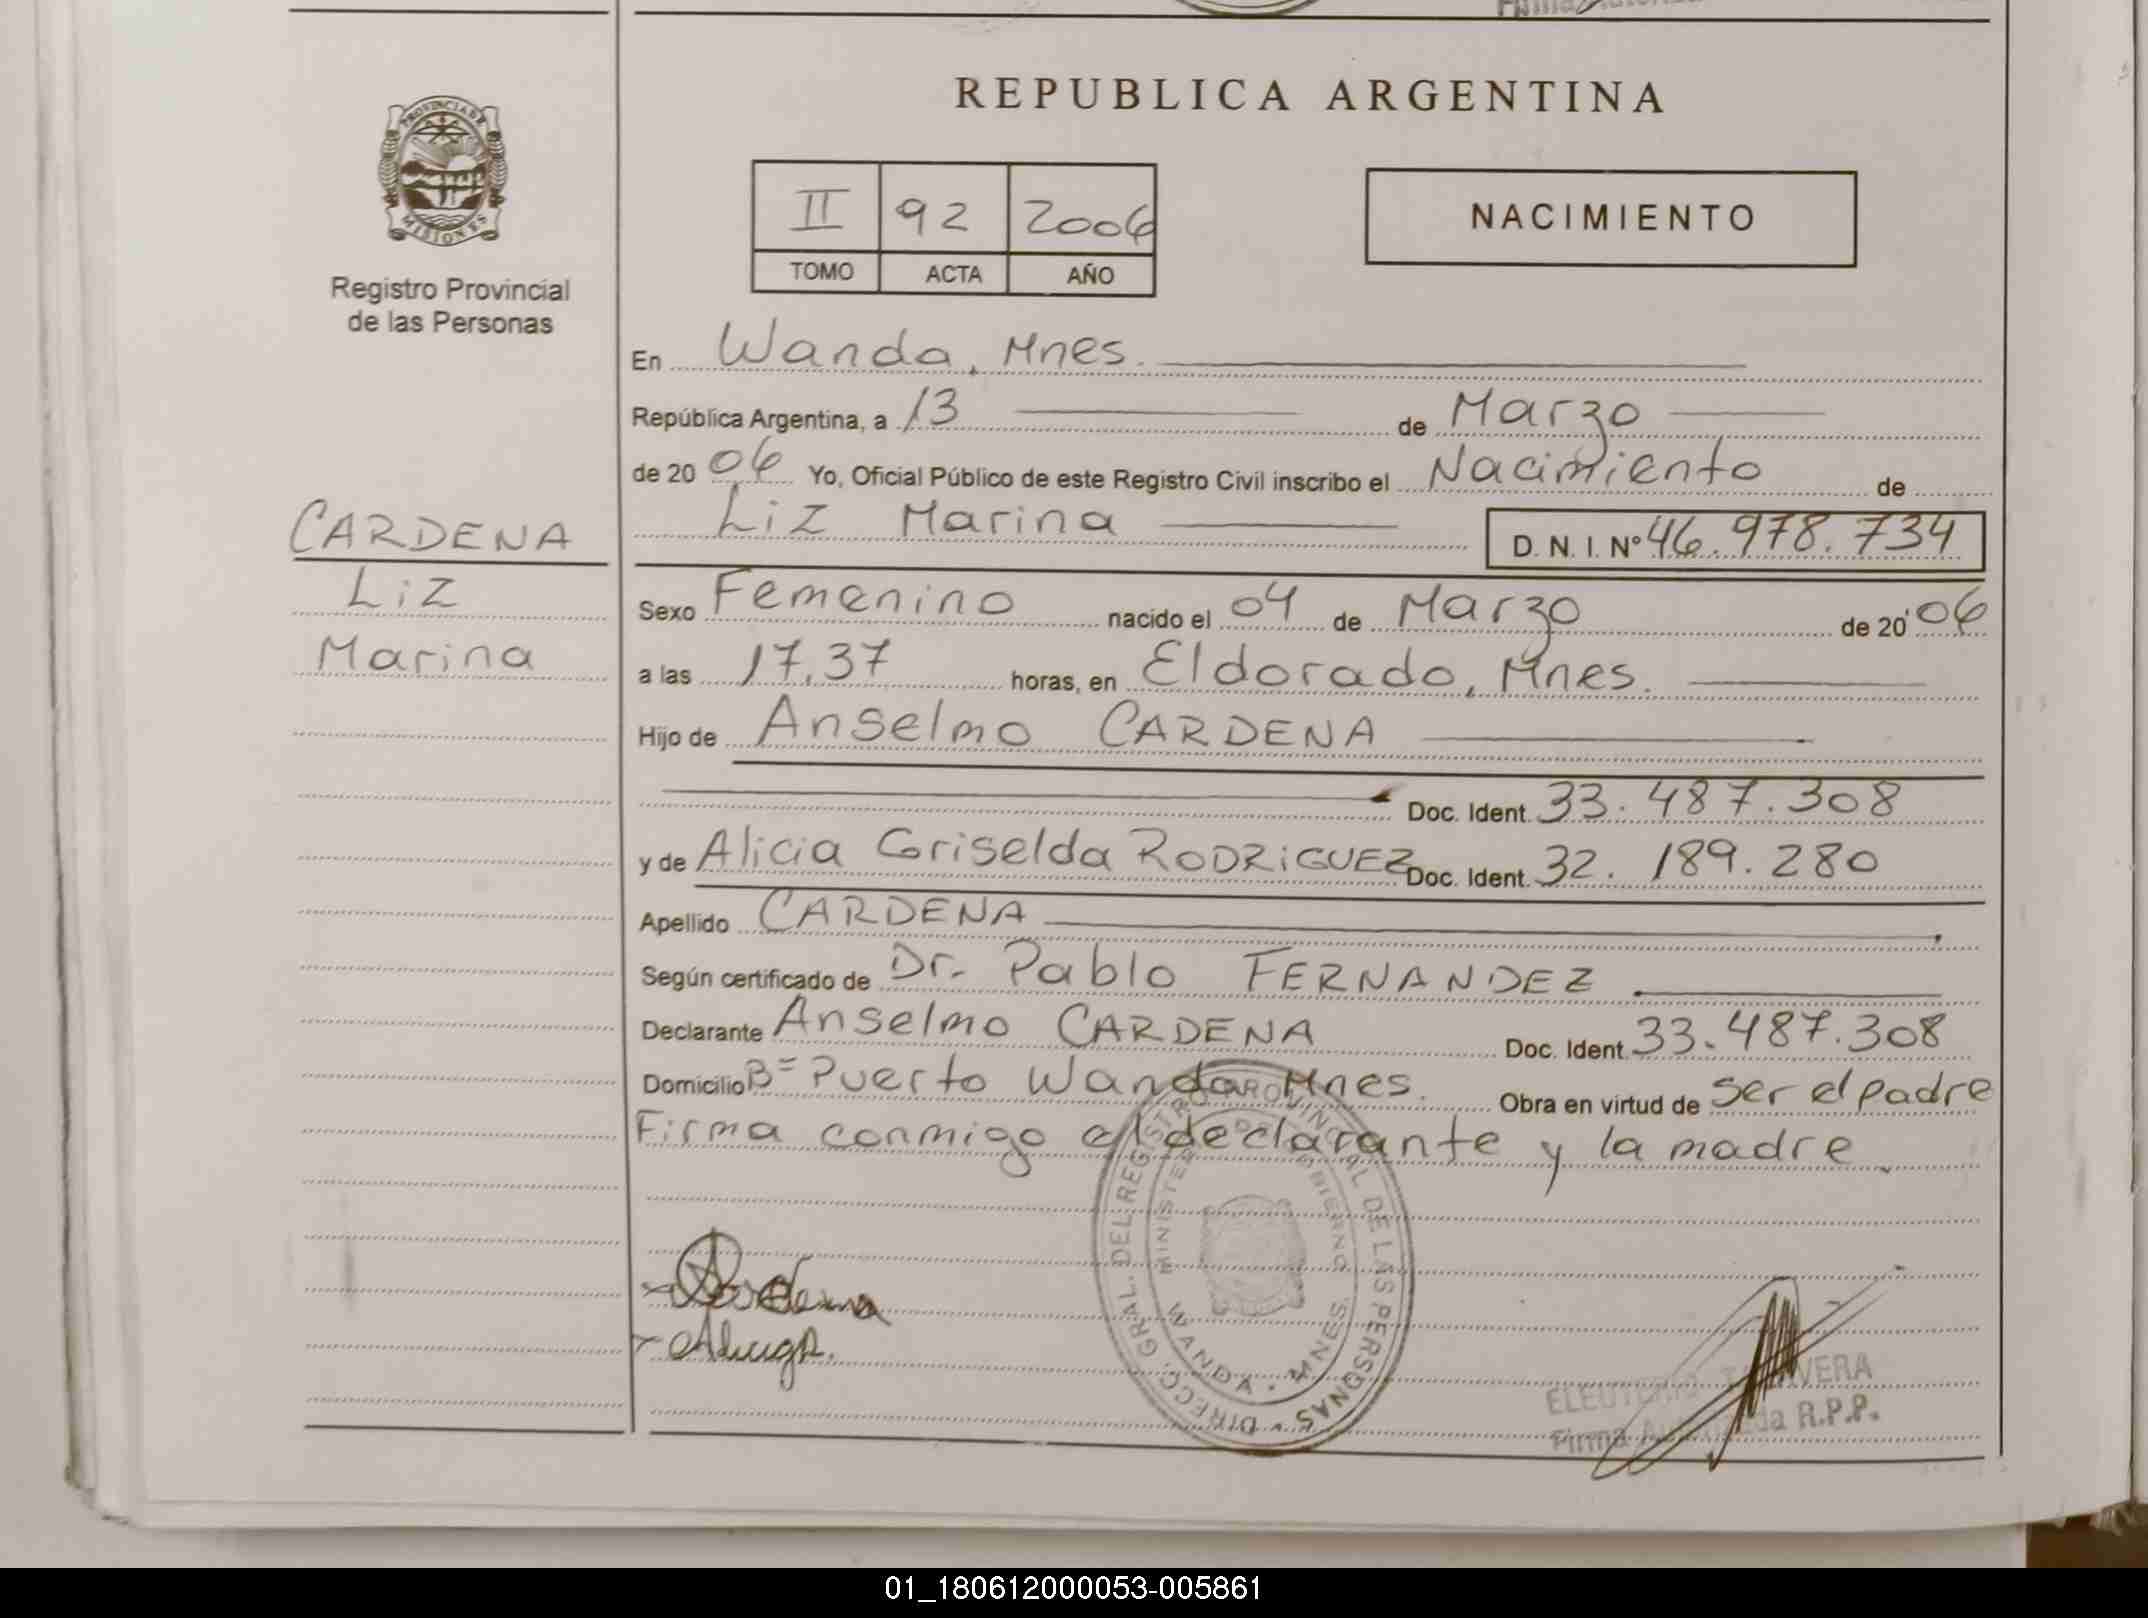 REPUBLICA ARGENTINA
PROVINCIA DE
MISIONES
Registro Provincial
de las Personas
II 92 2006
TOMO ACTA AÑO
NACIMIENTO
En Wanda, Mnes.
República Argentina, a 13 de Marzo
de 20 06 Yo, Oficial Público de este Registro Civil inscribo el Nacimiento de
Liz Marina D. N. I. Nº 46.978.734
CARDENA
Liz
Marina
Sexo Femenino nacido el 04 de Marzo de 20 06
a las 17,37 horas, en Eldorado, Mnes.
Hijo de Anselmo CARDENA
Doc. Ident. 33.487.308
y de Alicia Griselda RODRiGUEZ Doc. Ident. 32.189.280
Apellido CARDENA
Según certificado de Dr. Pablo FERNANDEZ
Declarante Anselmo CARDENA Doc. Ident. 33.487.308
Domicilio Bº Puerto Wanda Mnes. Obra en virtud de ser el padre
Firma conmigo el declarante y la madre.
DIRECC. GRAL. DEL REGISTRO PROVINCIAL DE LAS PERSONAS
WANDA - MNES.
Cardena
R.P.P.
01_180612000053-005861